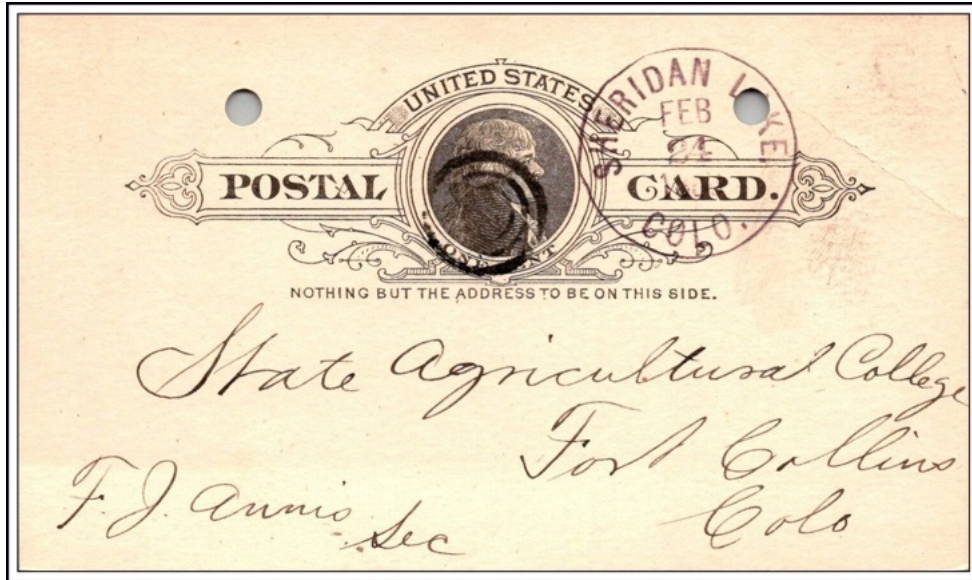 UNITED STATES
POSTAL CARD.
SHERIDAN
FEB
24
COLO.
ONE
NOTHING BUT THE ADDRESS TO BE ON THIS SIDE.
State Agricultural College
Fort Collins
Colo
F. J. Annis
Sec